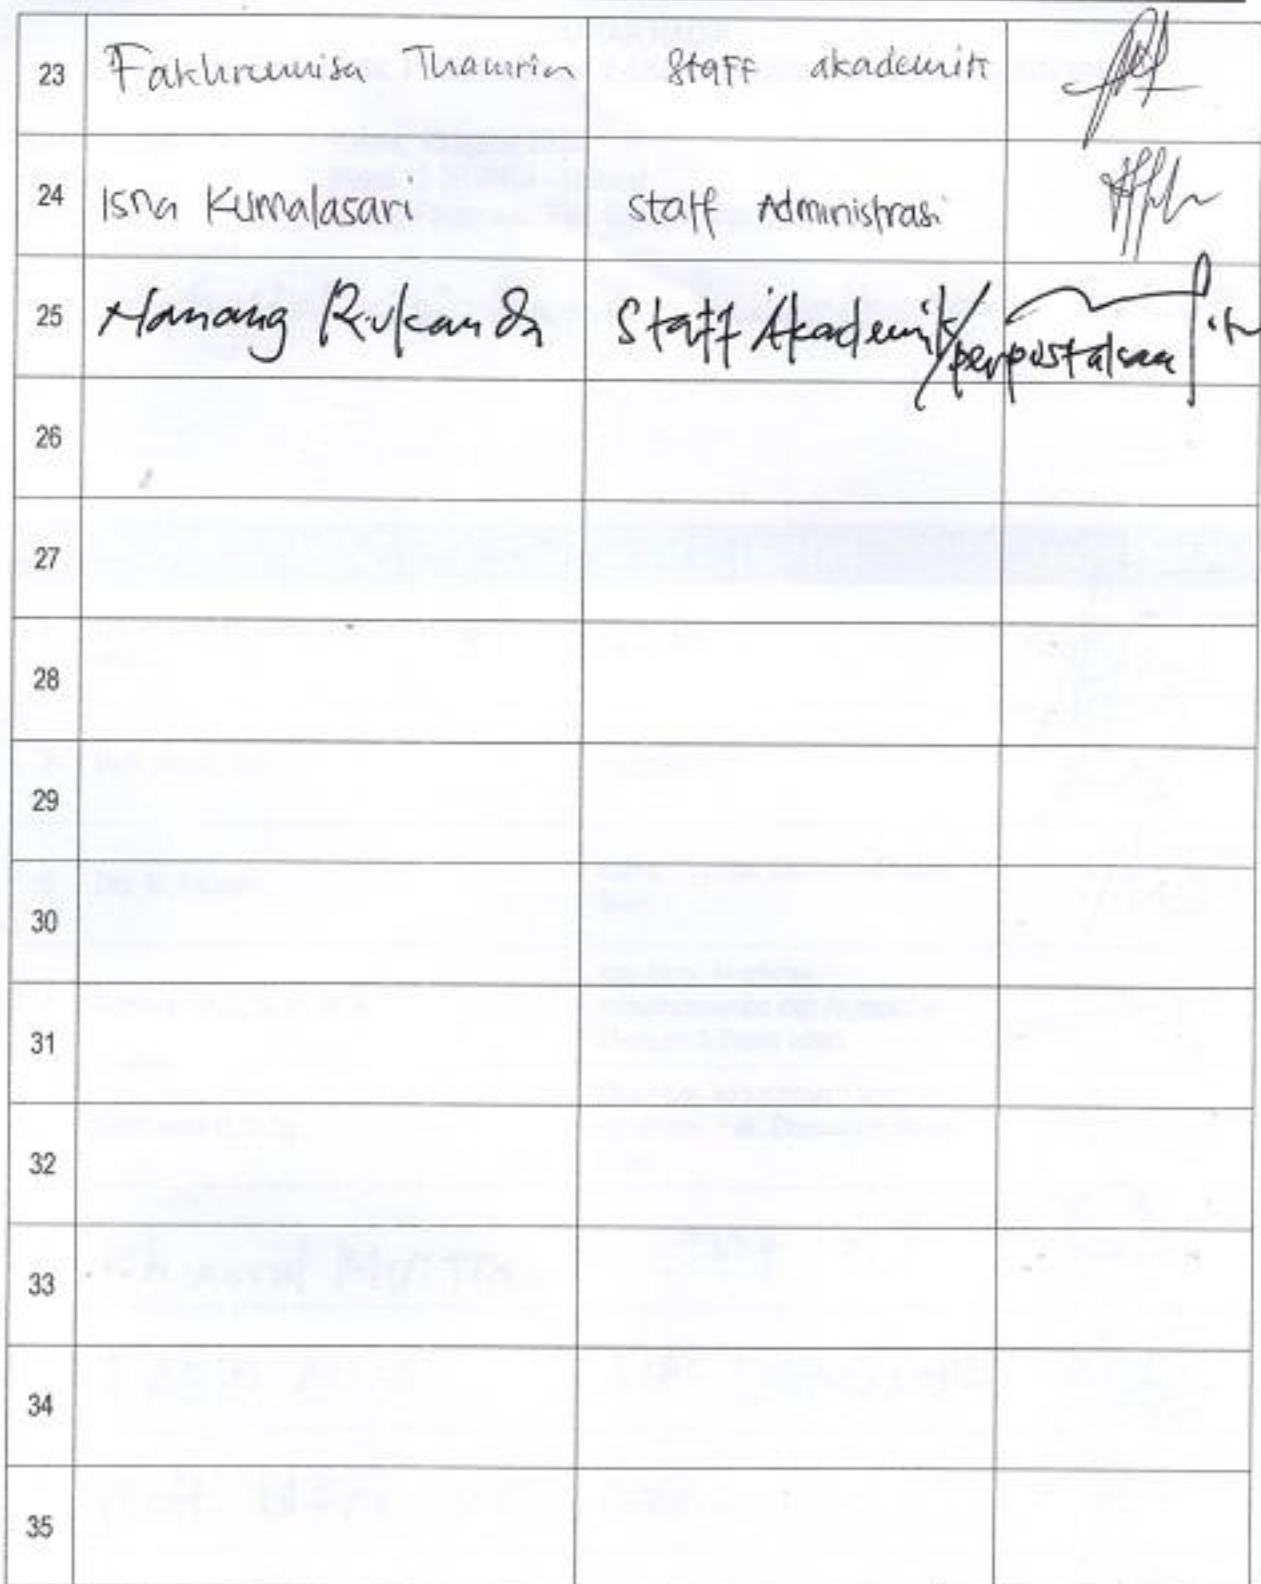 23 Fakhrunnisa Thamrin Staff akademik
24 Isna Kumalasari Staff Administrasi
25 Nanang Rukanda Staff Akademik/perpustakaan
26
27
28
29
30
31
32
33
34
35